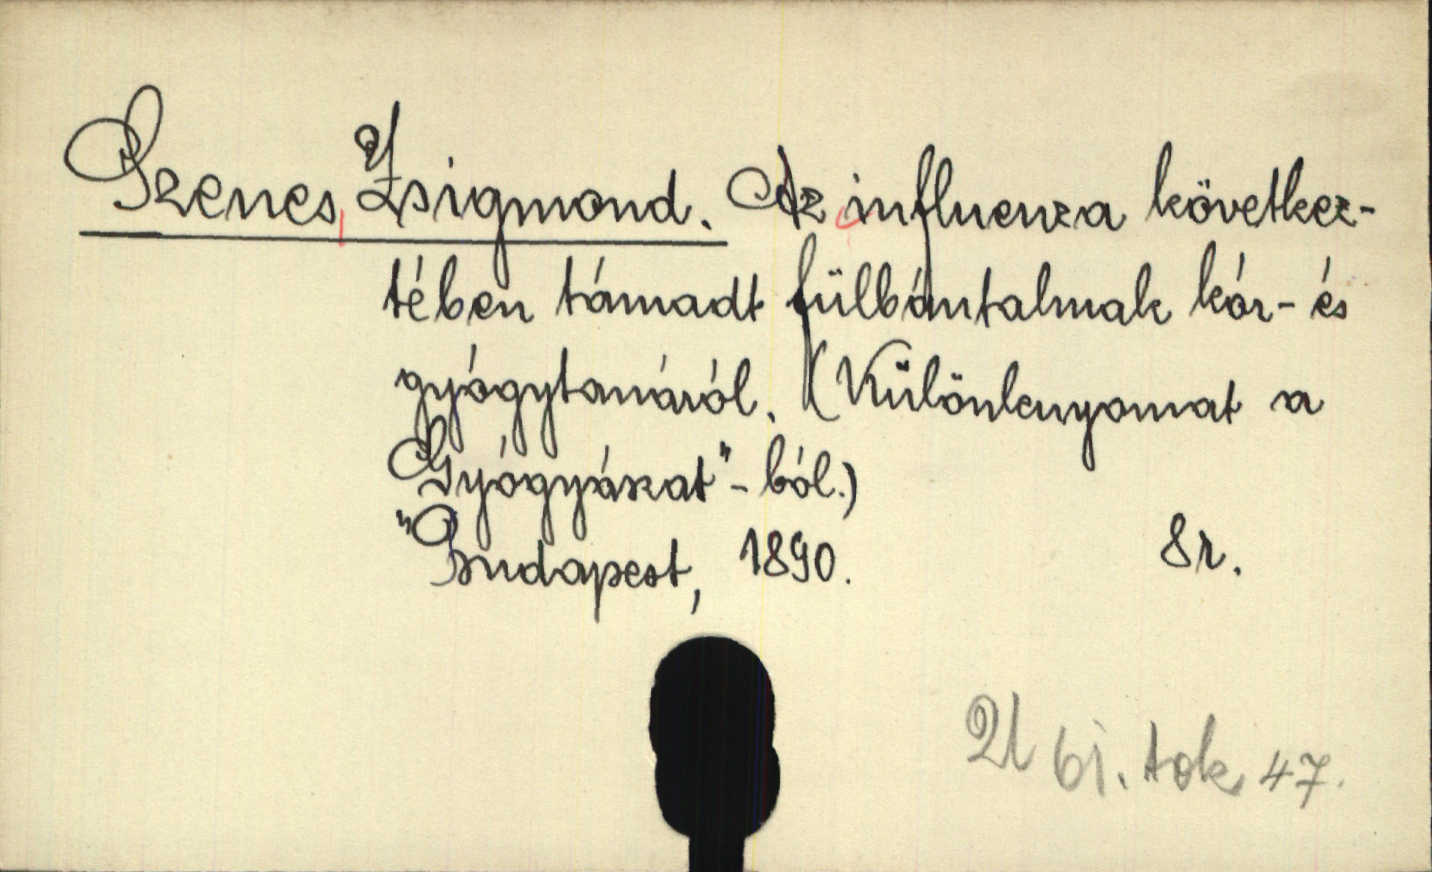 Szenes, Zsigmond. Az influenza következ-
tében támadt fülbántalmak kór- és
gyógytanáról. (Különlenyomat a
"Gyógyászat"-ból.)
Budapest, 1890. 8r.
tok 47.